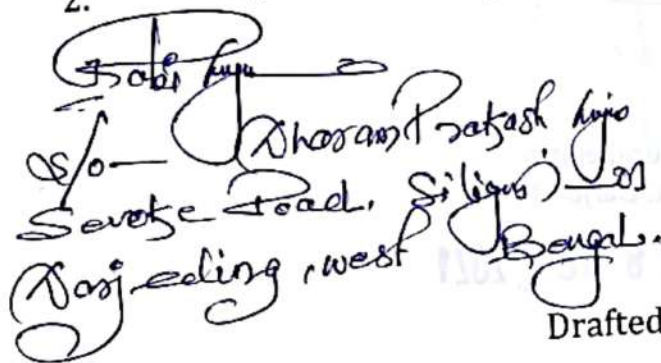 2.
S/o — Dharam Prakash
Sevoke Road, Siliguri - 01
Darjeeling, west Bengal.
Drafted